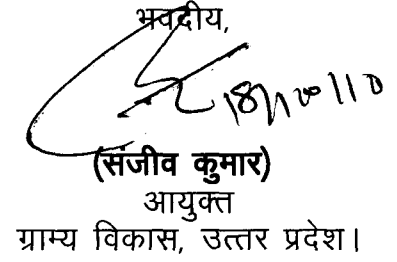 भवदीय,
18/10/10
(संजीव कुमार)
आयुक्त
ग्राम्य विकास, उत्तर प्रदेश।